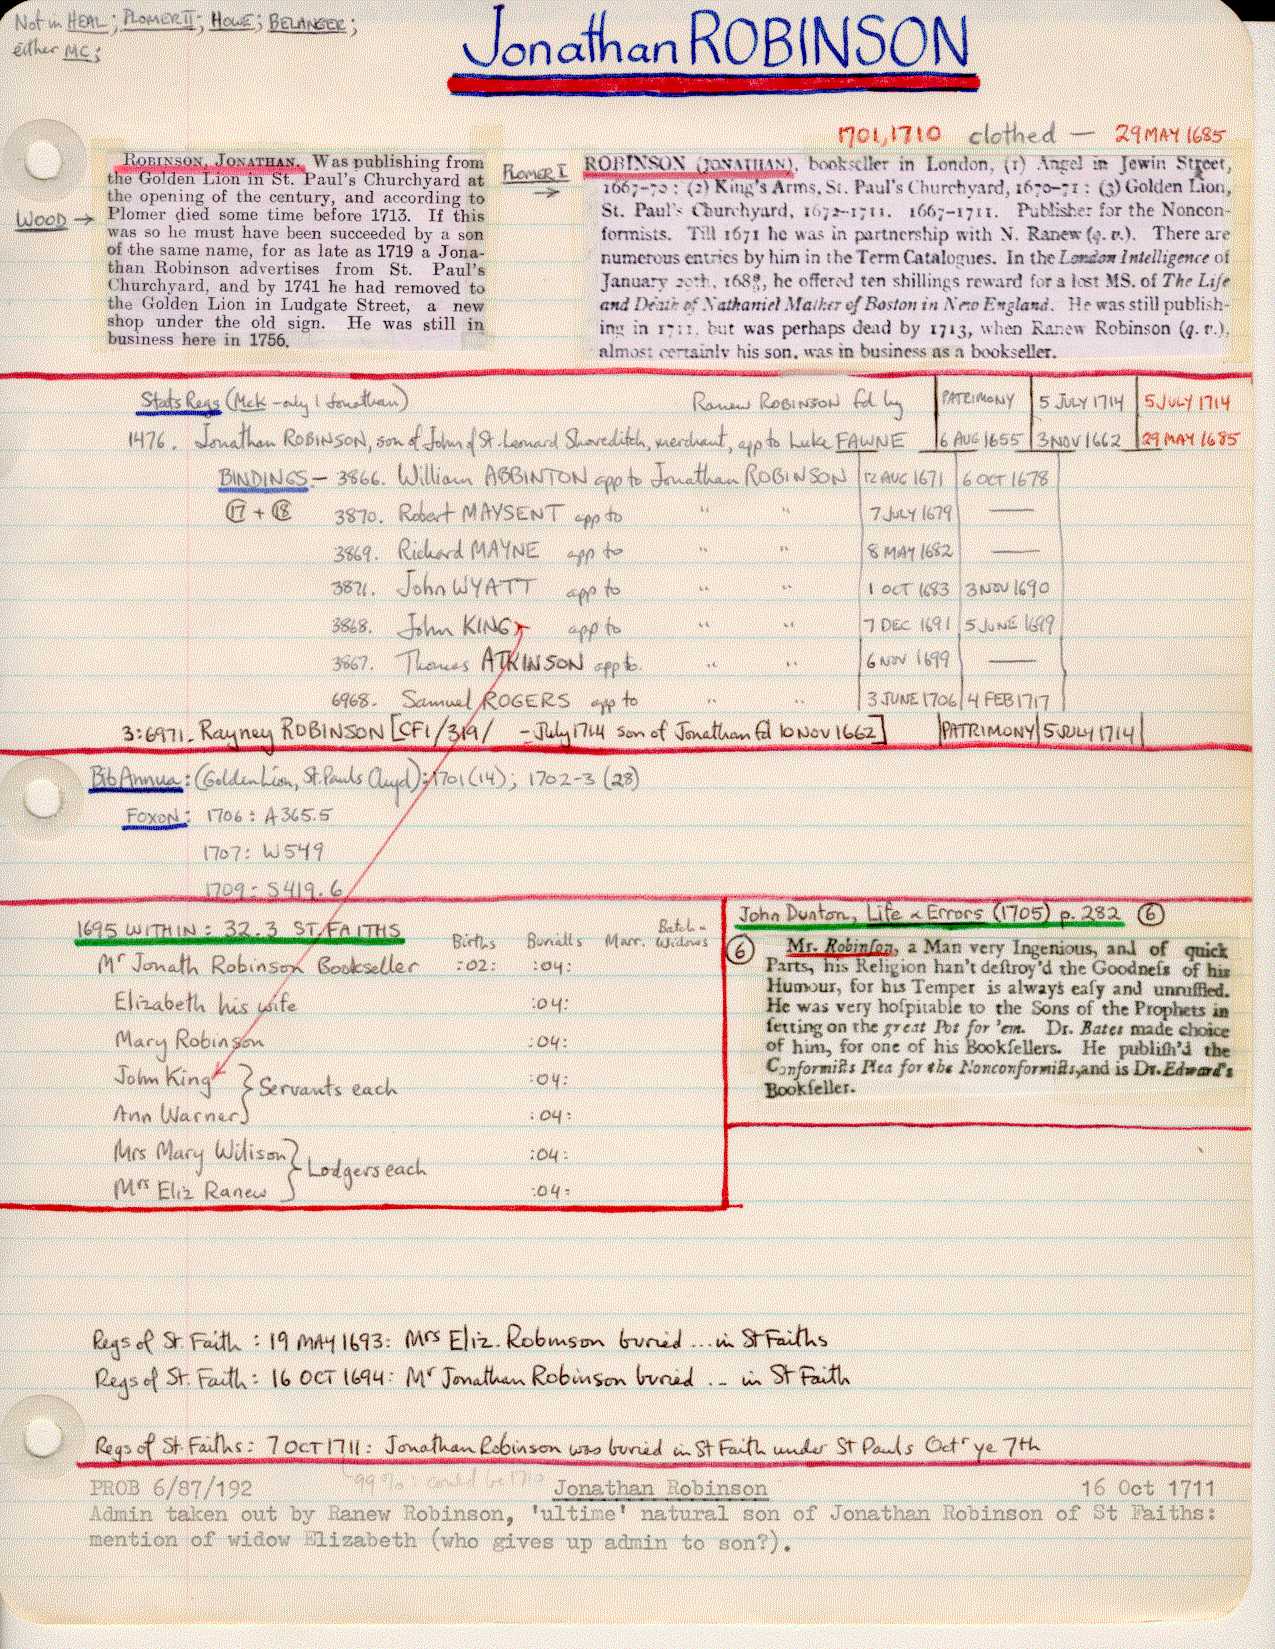 Not in HEAL; PLOMER II; HOWE; BELANGER;
either MC;
Jonathan ROBINSON
1701, 1710 clothed — 29 MAY 1685
WOOD →
ROBINSON, JONATHAN. Was publishing from
the Golden Lion in St. Paul's Churchyard at
the opening of the century, and according to
Plomer died some time before 1713. If this
was so he must have been succeeded by a son
of the same name, for as late as 1719 a Jona-
than Robinson advertises from St. Paul's
Churchyard, and by 1741 he had removed to
the Golden Lion in Ludgate Street, a new
shop under the old sign. He was still in
business here in 1756.
PLOMER I →
ROBINSON (JONATHAN), bookseller in London, (1) Angel in Jewin Street,
1667-70 : (2) King's Arms, St. Paul's Churchyard, 1670-71 : (3) Golden Lion,
St. Paul's Churchyard, 1672-1711. 1667-1711. Publisher for the Noncon-
formists. Till 1671 he was in partnership with N. Ranew (q. v.). There are
numerous entries by him in the Term Catalogues. In the London Intelligence of
January 20th, he offered ten shillings reward for a lost MS. of The Life
and Death of Nathaniel Mather of Boston in New England. He was still publish-
ing in 1711, but was perhaps dead by 1713, when Ranew Robinson (q. v.),
almost certainly his son, was in business as a bookseller.
Stats Regs (McK - only 1 Jonathan) Ranew ROBINSON fd by PATRIMONY 5 JULY 1714 5 JULY 1714
1476. Jonathan ROBINSON, son of John of St. Leonard Shoreditch, merchant, app to Luke FAWNE 6 AUG 1655 3 NOV 1662 29 MAY 1685
BINDINGS — 3866. William ABBINTON app to Jonathan ROBINSON 12 AUG 1671 6 OCT 1678
17 + 18 3870. Robert MAYSENT app to " " 7 JULY 1679 —
3869. Richard MAYNE app to " " 8 MAY 1682 —
3871. John WYATT app to " " 1 OCT 1683 3 NOV 1690
3868. John KING app to " " 7 DEC 1691 5 JUNE 1699
3867. Thomas ATKINSON app to " " 6 NOV 1699 —
6968. Samuel ROGERS app to " " 3 JUNE 1706 4 FEB 1717
3:6971. Rayney ROBINSON [CF1/319/ - July 1714 son of Jonathan fd 10 NOV 1662] PATRIMONY 5 JULY 1714
Bib Annua: (Golden Lion, St. Pauls Chyd): 1701 (14); 1702-3 (28)
FOXON: 1706: A365.5
1707: W549
1709: S419.6
1695 WITHIN: 32.3 ST. FAITHS Births Burialls Marr. Batch & Widows
Mr Jonath Robinson Bookseller :02: :04:
Elizabeth his wife :04:
Mary Robinson :04:
John King } Servants each :04:
Ann Warner :04:
Mrs Mary Wilison } Lodgers each :04:
Mrs Eliz Ranew :04:
John Dunton, Life & Errors (1705) p. 282 6
6 Mr. Robinson, a Man very Ingenious, and of quick
Parts, his Religion han't destroy'd the Goodness of his
Humour, for his Temper is always easy and unruffled.
He was very hospitable to the Sons of the Prophets in
setting on the great Pot for 'em. Dr. Bates made choice
of him, for one of his Booksellers. He publish'd the
Conformists Plea for the Nonconformists, and is Dr. Edward's
Bookseller.
Regs of St. Faith : 19 MAY 1693: Mrs Eliz. Robinson buried ... in St Faiths
Regs of St. Faith: 16 OCT 1694: Mr Jonathan Robinson buried .. in St Faith
Regs of St. Faiths: 7 OCT 1711: Jonathan Robinson was buried in St Faith under St Pauls Octr ye 7th
99%: could be 1710
PROB 6/87/192 Jonathan Robinson 16 Oct 1711
Admin taken out by Ranew Robinson, 'ultime' natural son of Jonathan Robinson of St Faiths:
mention of widow Elizabeth (who gives up admin to son?).